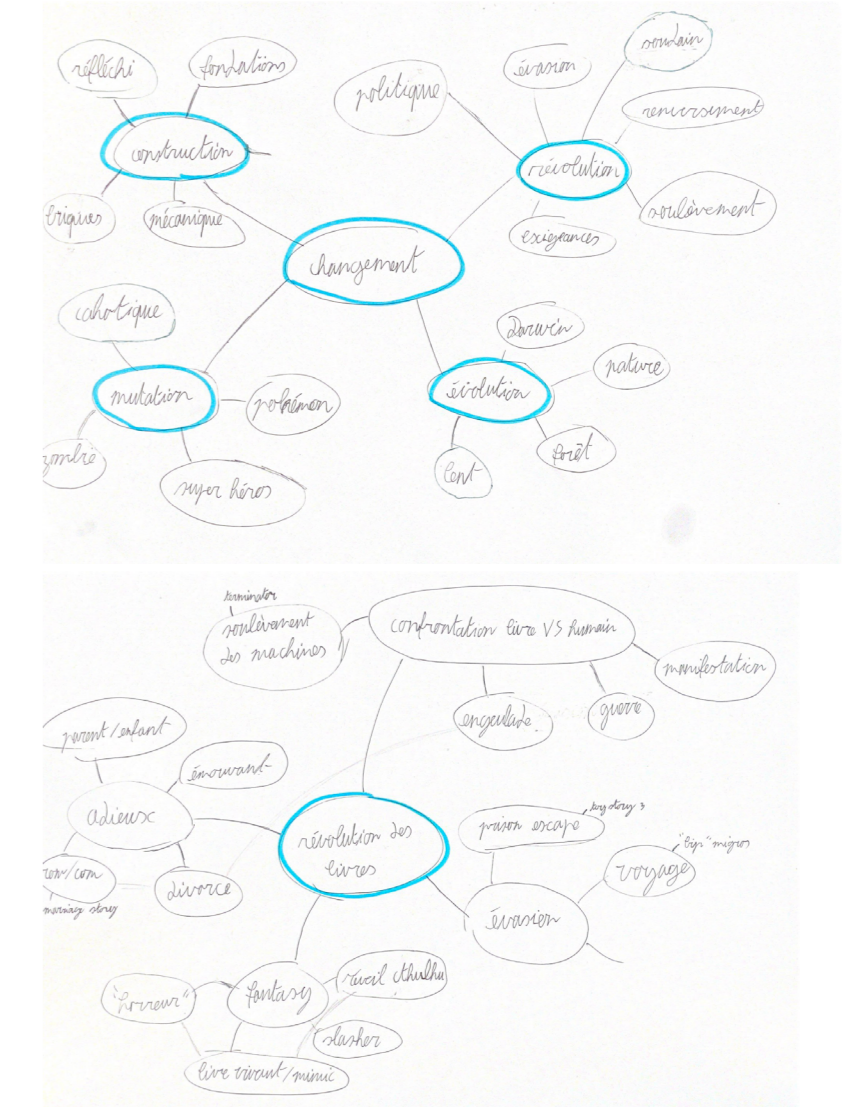 réfléchi
fondations
construction
briques
mécanique
politique
évasion
soudain
renversement
révolution
soulèvement
exigeances
changement
cahotique
mutation
pokémon
zombie
super héros
Darwin
nature
évolution
forêt
lent
terminator
soulèvement
des machines
confrontation livre VS humain
manifestation
engeulade
guerre
parent/enfant
émouvant
adieux
rom/com
marriage story
divorce
révolution des
livres
prison escape
toy story 3
"bip" migros
voyage
évasion
"horreur"
fantasy
réveil cthulhu
slasher
livre vivant/mimic